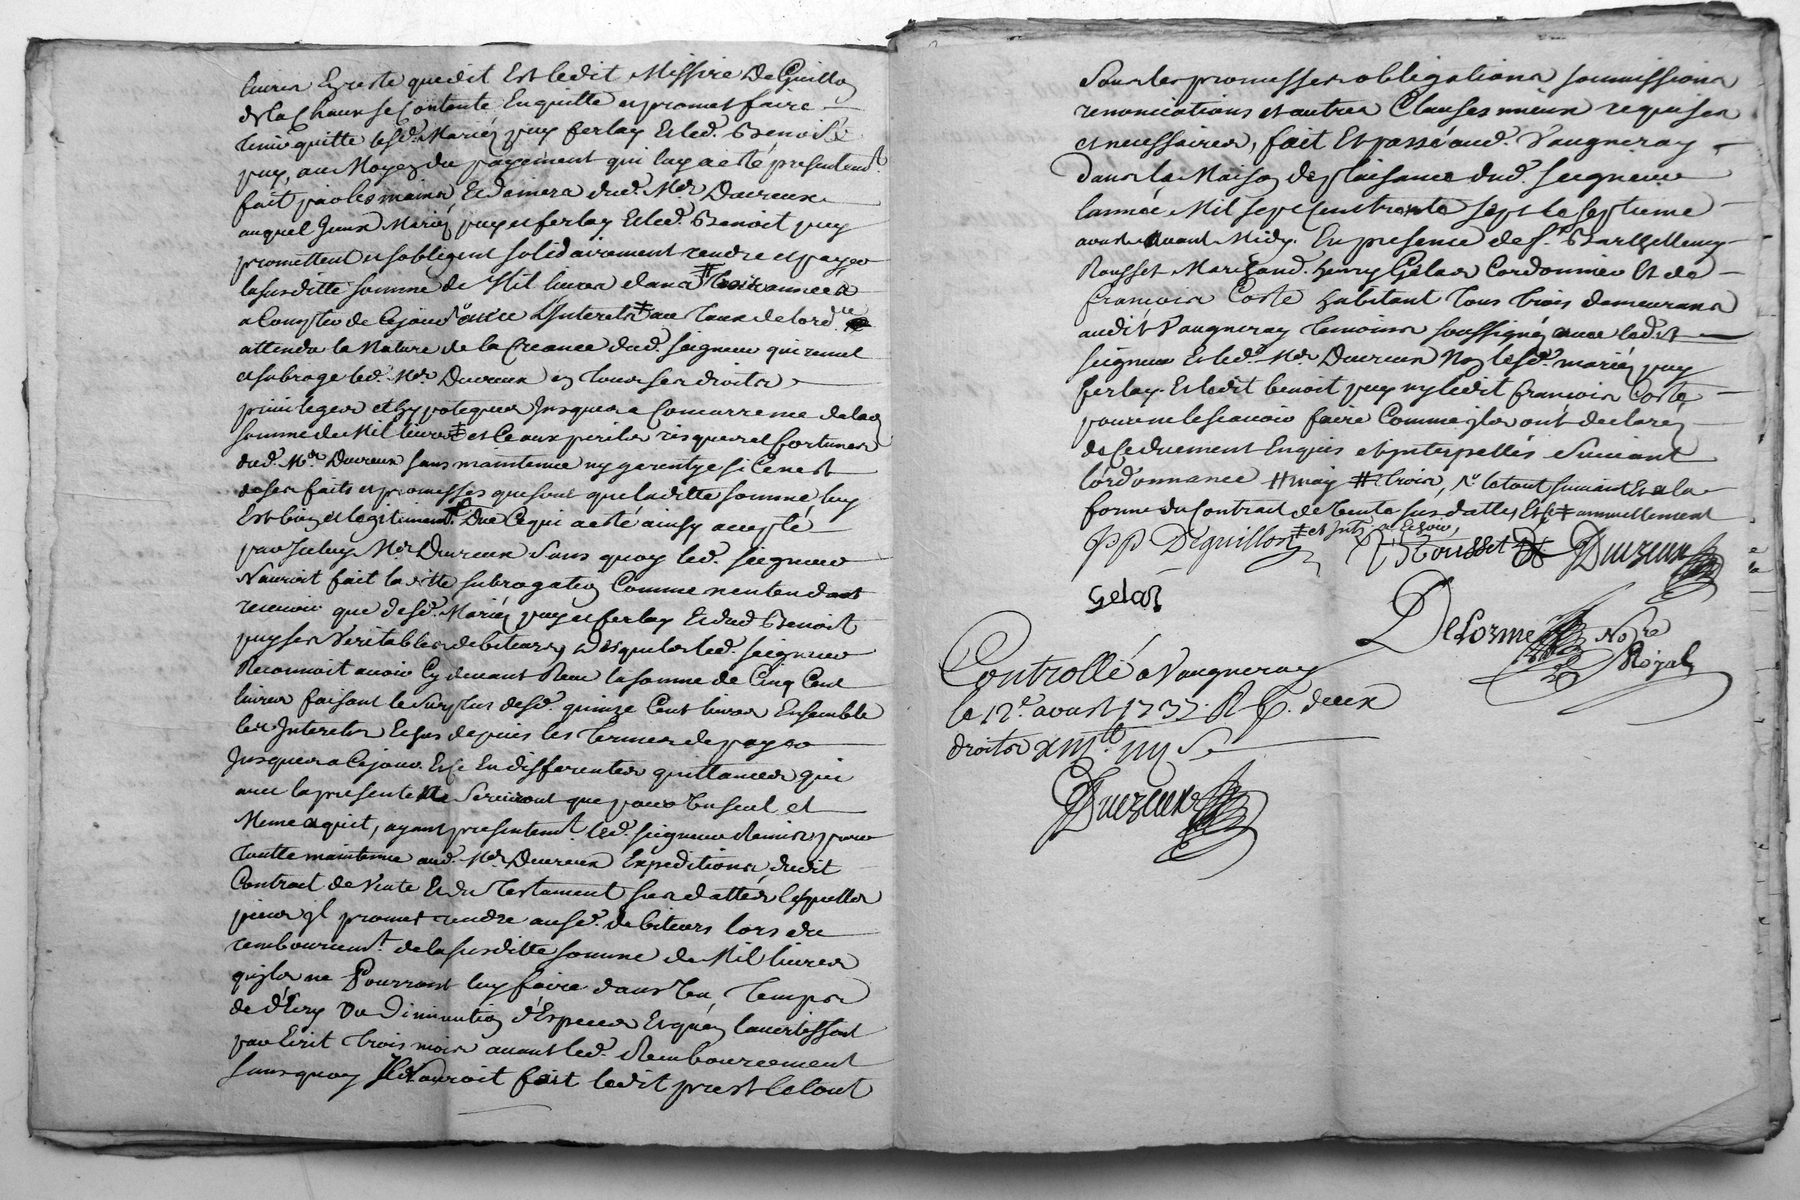 livres Et reste quedit Est ledit Messire De Guillon
de la Chaux se Contente Enquitte et promet faire
tenir quitte lesd. Mariéz puy ferlay Et led. Benoist
puy, au Moyen du payement qui luy a esté presentemt.
fait par les mains Et deniers dud. Mr. Duvreux
auquel Iceux Mariéz puy et ferlay Et led. Benoit puy
promettent et s'obligent solidairement rendre et payer
la susditte somme de Mil livres dans trois années
a Compter de Cejourd'uy avec Interets au taux de lord.ce
attendu la Nature de la Creance dud. seigneur qui remet
et subroge led. Mr. Duvreux en tous ses droits
privileges et hypoteques Jusques a Concurrence de lad.
somme de Mil livres et Ce aux perils risques et fortunes
dud. Mr. Duvreux sans maintenue ny garentye si Ce n'est
de ses faits et promesses que sont que laditte somme luy
Est bien et legitimemt. Due Ce qui a esté ainsy accepté
par Iceluy Mr. Duvreux sans quoy led. seigneur
N'auroit fait laditte subrogation Comme n'entendant
reconoir que desd. Mariéz puy et ferlay Et dud. Benoit
puy ses veritables debiteurs, desquels led. seigneur
Reconnoit avoir Cy devant Reçu la somme de Cinq Cent
livres faisant le surplus desd. quinze Cent livres Ensemble
les Interets Echus depuis les termes de payer
Jusques a Cejour. Et Ce En differentes quittances qui
avec la presente Ne serviront que pour Un seul et
Meme aquit, ayant presentemt. led. seigneur Remis pour
toutte maintenue aud. Mr. Duvreux Expeditions dudit
Contrat de Vente Et du testament sus dattés lesquelles
pieces Il promet rendre ausd. debiteurs lors du
remboursemt. de la susditte somme de Mil livres
qu'ils ne Pourront luy faire dans Un temps
de d'Ecry Ou Diminution d'Especes Et qu'en lavertissant
par Ecrit trois mois avant led. Remboursement
sans quoy Il N'auroit fait ledit prest le tout
sous les promesses obligations soumissions
renonciations et autres Clauses mieux requises
et necessaires, fait Et passé aud. Vaugneray
Dans la Maison de plaisance dud. seigneur
lannée Mil sept Cent trente sept le septieme
aoust avant Midy. En presence de Sr. Barthellemy
Rousset Marchand. henry Gelas Cordonnier Et de
françois Coste habitant tous trois demeurans
audit Vaugneray temoins soussignéz avec ledit
seigneur Et led. Mr. Duvreux Non lesd. mariéz puy
ferlay. Et ledit benoit puy ny ledit françois Coste
pour ne le scavoir faire Comme ils ont declaréz
de Ce duement Enquis et Interpellés suivant
l'ordonnance # trois, le tout suivant Et a la
forme du Contrat de vente sus datté, Et annuellement
PP Deguillon et Ints a Echoir, Rousset Duvreux
Gelas
Delorme Nore
Royal
Controllé a Vaugneray
le 12e. aoust 1737. R. deux
droits
Duvreux